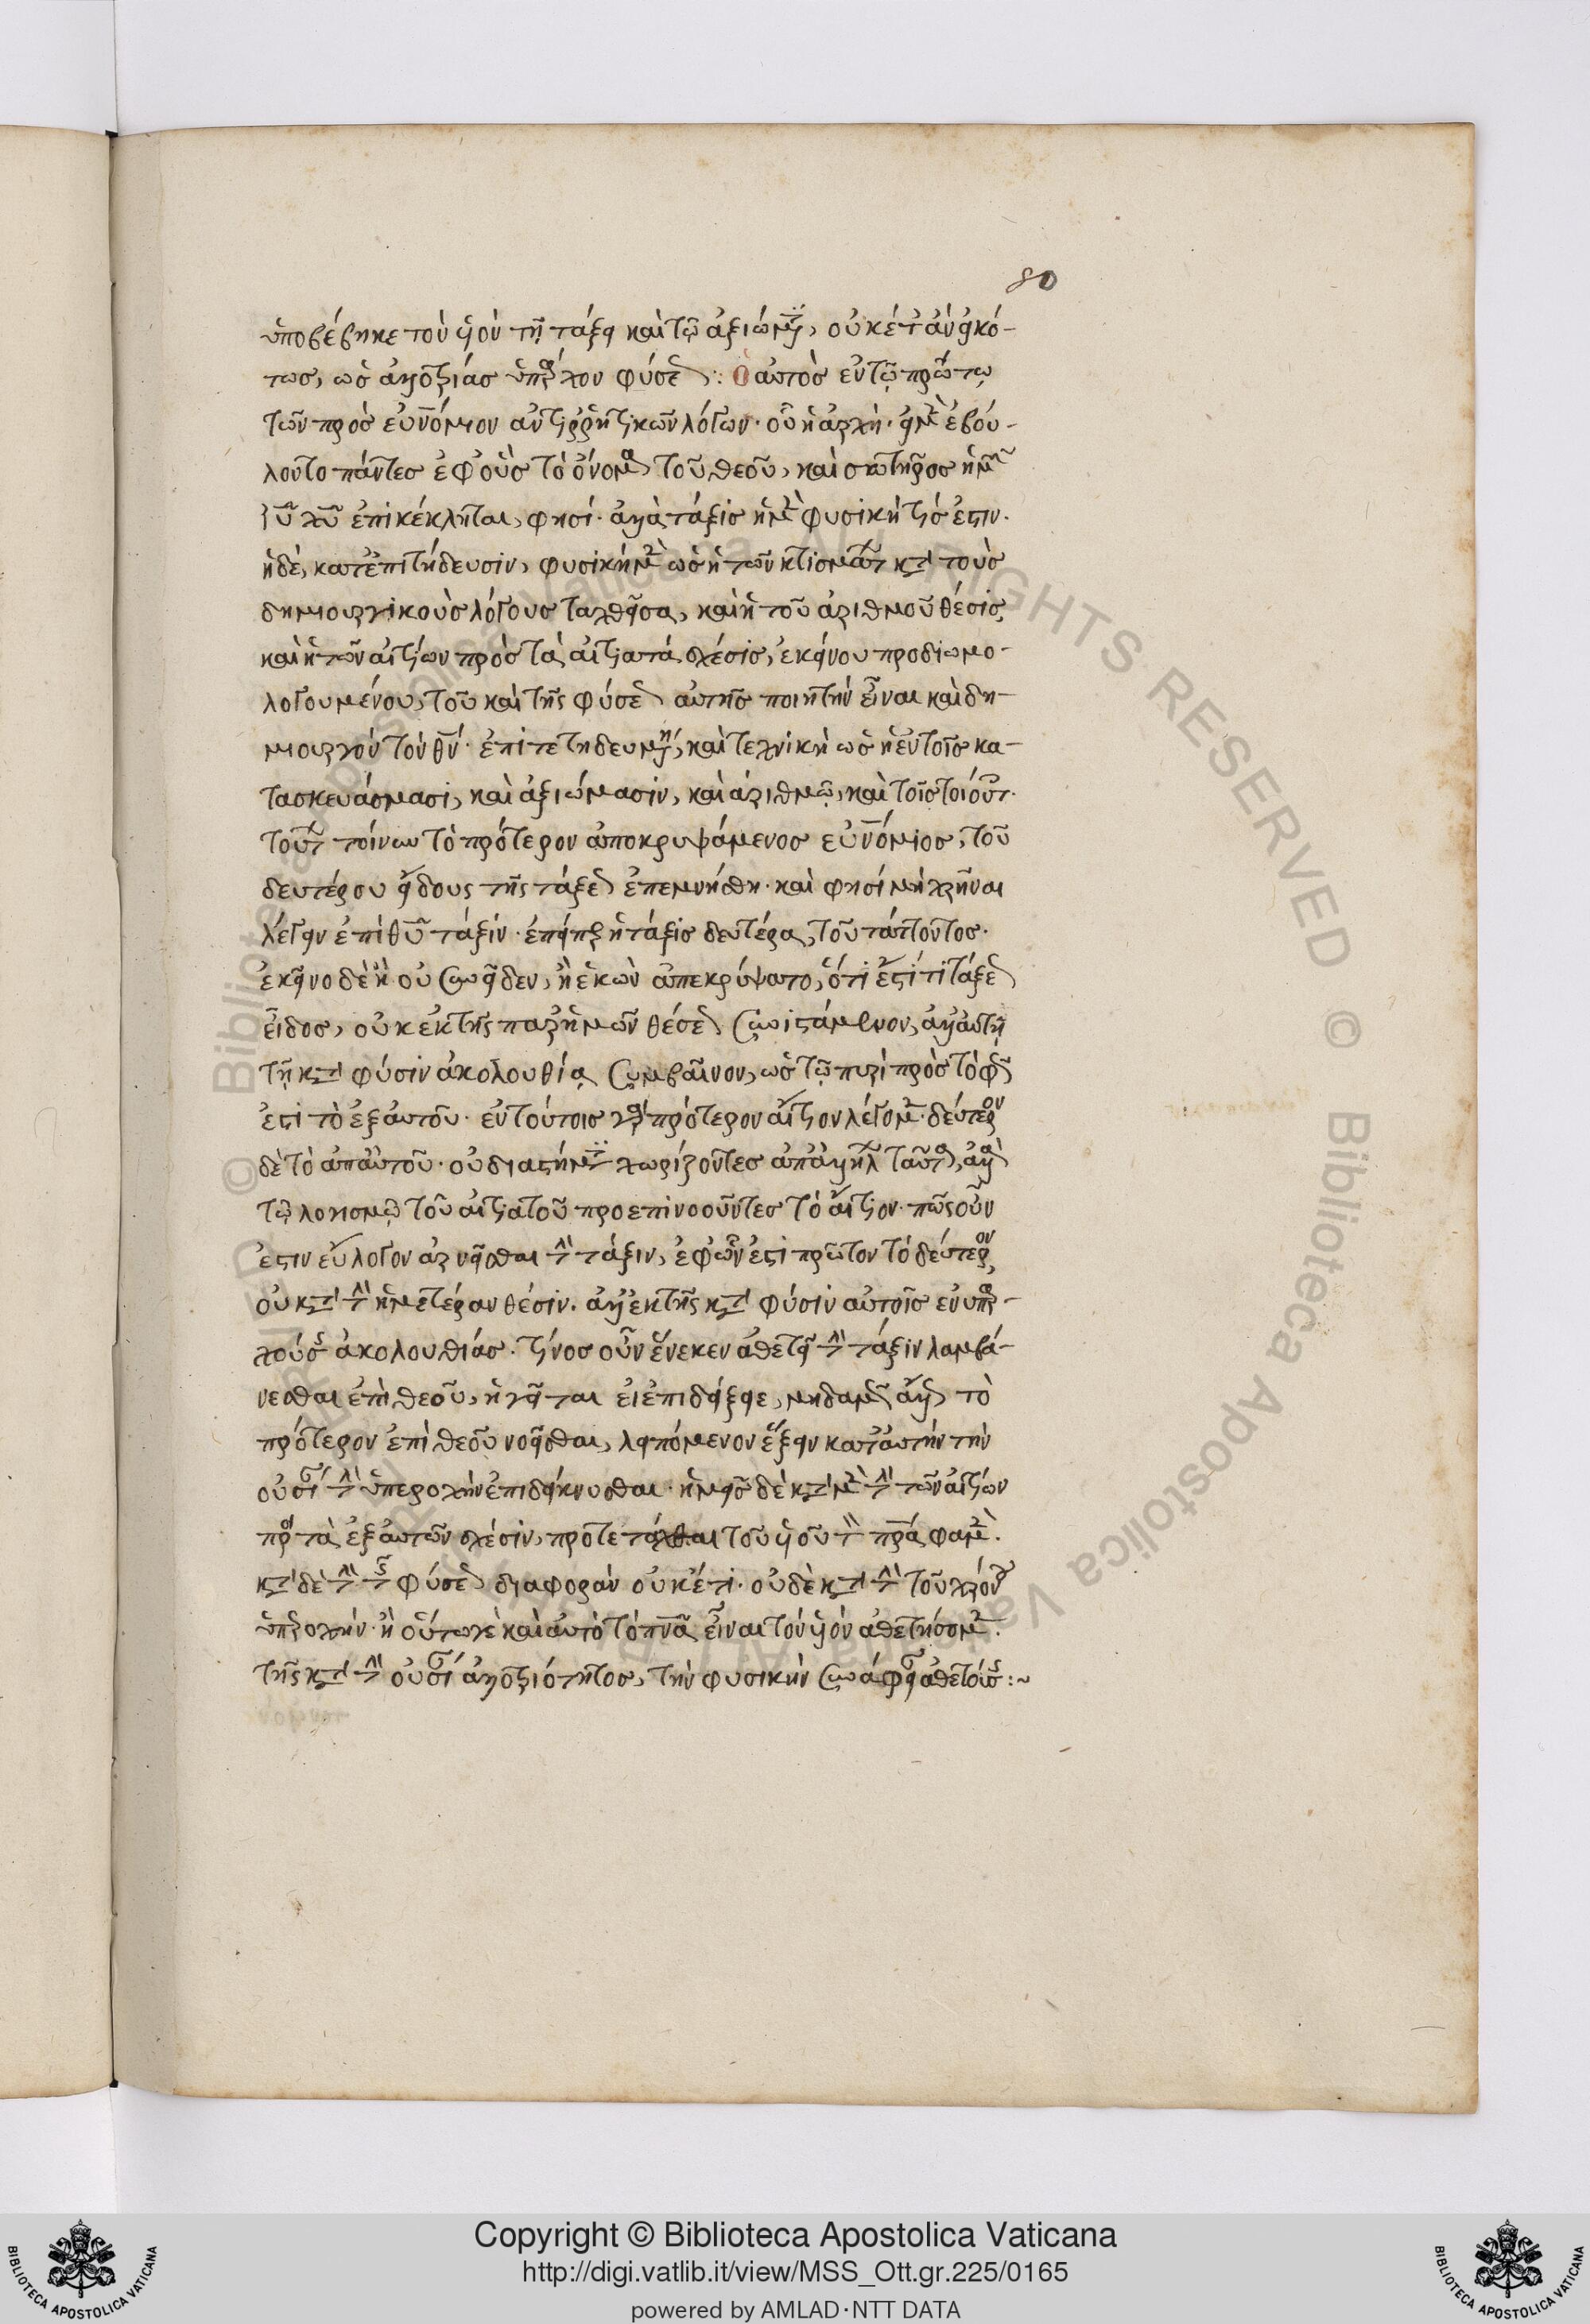 80
ὑποβέβηκε τὸν υἱὸν τῇ τάξει καὶ τῷ ἀξιώματι, οὐκέτ' ἂν εἰκό-
τως, ὡς ἀλλοτρίας ὑπάρχον φύσεως: Ὁ αὐτὸς ἐν τῷ πρώτῳ
τῶν πρὸς εὐνόμιον ἀντιρρητικῶν λόγων· οὗ ἡ ἀρχὴ· εἰ μὲν ἐβού-
λοντο πάντες ἐφ' οὓς τὸ ὄνομα τοῦ θεοῦ, καὶ σωτῆρος ἡμῶν
ἰυ χυ ἐπικέκληται, φησί· ἀλλὰ τάξις ἡ μὲν φυσικὴ τίς ἐστιν·
ἡ δὲ, κατ' ἐπιτήδευσιν, φυσικὴ μὲν ὡς ἡ τῶν κτισμάτων κατὰ τοὺς
δημιουργικοὺς λόγους ταχθεῖσα, καὶ ἡ τοῦ ἀριθμοῦ θέσις
καὶ ἡ τῶν αἰτίων πρὸς τὰ αἰτιατὰ σχέσις, ἐκείνου προδιωμο-
λογουμένου, τοῦ καὶ τῆς φύσεως αὐτῆς ποιητὴν εἶναι καὶ δη-
μιουργὸν τὸν θν· ἐπιτετηδευμένη, καὶ τεχνικὴ ὡς ἡ ἐν τοῖς κα-
τασκευάσμασι, καὶ ἀξιώμασιν, καὶ ἀριθμῷ, καὶ τοῖς τοιούτοις
τούτων τοίνυν τὸ πρότερον ἀποκρυψάμενος εὐνόμιος, τοῦ
δευτέρου εἴδους τῆς τάξεως ἐπεμνήσθη· καὶ φησί μὴ χρῆναι
λέγειν ἐπὶ θυ τάξιν· ἐπείπερ ἡ τάξις δευτέρα, τοῦ τάττοντος·
ἐκεῖνο δὲ ἢ οὐ συνεῖδεν, ἢ ἑκὼν ἀπεκρύψατο, ὅτι ἔστί τι τάξεως
εἶδος, οὐκ ἐκ τῆς παρ' ἡμῶν θέσεως συνιστάμενον, ἀλλ' αὐτῇ
τῇ κατὰ φύσιν ἀκολουθίᾳ συμβαῖνον, ὡς τῷ πυρὶ πρὸς τὸ φῶς
ἐστι τὸ ἐξ αὐτοῦ· ἐν τούτοις γὰρ πρότερον αἴτιον λέγομεν· δεύτερον
δὲ τὸ ἀπ' αὐτοῦ· οὐ διαστήματι χωρίζοντες ἀπ' ἀλλήλων ταῦτα, ἀλλὰ
τῷ λογισμῷ τοῦ αἰτιατοῦ προεπινοοῦντες τὸ αἴτιον· πῶς οὖν
ἐστιν εὔλογον ἀρνεῖσθαι τὴν τάξιν, ἐφ' ὧν ἐστι πρῶτον τὸ δεύτερον,
οὐ κατὰ τὴν ἡμετέραν θέσιν. ἀλλ' ἐκ τῆς κατὰ φύσιν αὐτοῖς ἐνυπαρ-
χούσης ἀκολουθίας· τίνος οὖν ἕνεκεν ἀθετεῖ τὴν τάξιν λαμβά-
νεσθαι ἐπὶ θεοῦ, ἡγεῖται εἰ ἐπιδείξειε, μηδαμῶς ἄλλως τὸ
πρότερον ἐπὶ θεοῦ νοεῖσθαι, λειπόμενον ἕξειν κατ' αὐτὴν τὴν
οὐσίαν τὴν ὑπεροχὴν ἐπιδείκνυσθαι· ἡμεῖς δὲ κατὰ μὲν τὴν τῶν αἰτίων
πρὸς τὰ ἐξ αὐτῶν σχέσιν, προτετάχθαι τοῦ υἱοῦ τὸν πρα φαμὲν·
κατὰ δὲ τὴν τῆς φύσεως διαφορὰν οὐκέτι· οὐδὲ κατὰ τὴν τοῦ χρόνου
ὑπεροχήν· ἢ οὕτω γε καὶ αὐτὸ τὸ πνα εἶναι τὸν υἱὸν ἀθετήσομεν·
τῆς κατὰ τὴν οὐσίαν ἀλλοτριότητος, τὴν φυσικὴν συνάφειαν ἀθετούσης :~